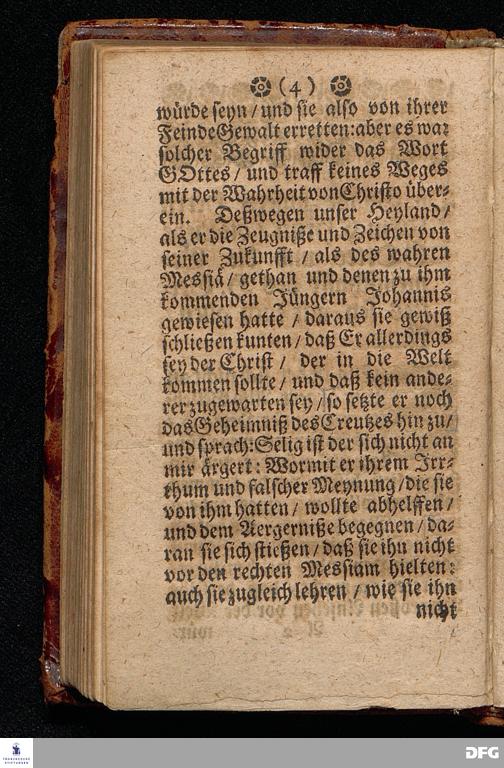 (4)
würde seyn / und sie also von ihrer
Feinde Gewalt erretten: aber es war
solcher Begriff wider das Wort
GOttes / und traff keines Weges
mit der Wahrheit von Christo über-
ein. Deßwegen unser Heyland /
als er die Zeugniße und Zeichen von
seiner Zukunfft / als des wahren
Messiä / gethan und denen zu ihm
kommenden Jüngern Johannis
gewiesen hatte / daraus sie gewiß
schließen kunten / daß Er allerdings
sey der Christ / der in die Welt
kommen sollte / und daß kein ande-
rer zugewarten sey / so setzte er noch
das Geheimniß des Creutzes hin zu /
und sprach: Selig ist der sich nicht an
mir ärgert: Wormit er ihrem Irr-
thum und falscher Meynung / die sie
von ihm hatten / wollte abhelffen /
und dem Aergerniße begegnen / da-
ran sie sich stießen / daß sie ihn nicht
vor den rechten Messiam hielten:
auch sie zugleich lehren / wie sie ihn
nicht
FRANCKESCHE
STIFTUNGEN
DFG